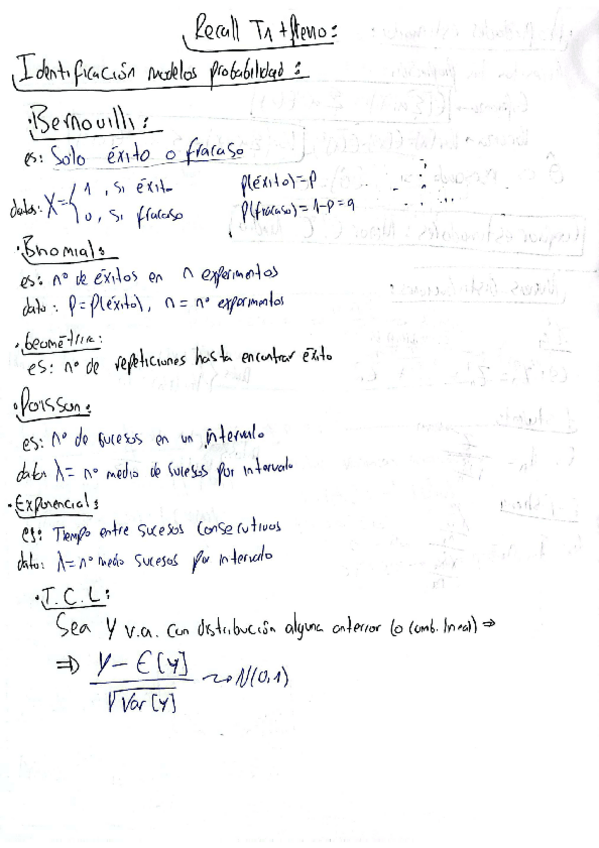 Recall T1 + Pleno:
Identificación modelos probabilidad:
·Bernouilli:
es: Solo éxito o fracaso
datos: X = { 1, si éxito
0, si fracaso
p(éxito) = p
p(fracaso) = 1-p = q
·Bnomial:
es: nº de éxitos en n experimentos
dato: p = p(éxito), n = nº experimentos
·Geométrica:
es: nº de repeticiones hasta encontrar éxito
·Poisson:
es: nº de sucesos en un intervalo
dato: λ = nº medio de sucesos por intervalo
·Exponencial:
es: Tiempo entre sucesos consecutivos
dato: λ = nº medio sucesos por intervalo
·T.C.L:
Sea Y v.a. con distribución alguna anterior (o comb. lineal) ⇒
⇒ Y - E[Y] / √Var[Y] ~ N(0,1)